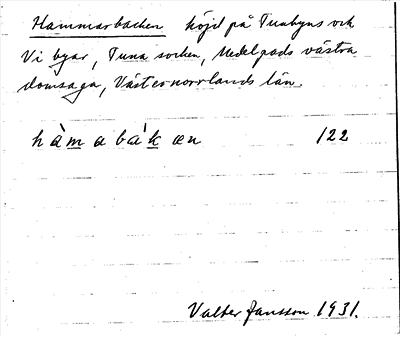 Hammarbacken höjd på Tunbyns och
Vi byar, Tuna socken, Medelpads västra
domsaga, Västernorrlands län.
hàmabákæn 122
Valter Jansson 1931.